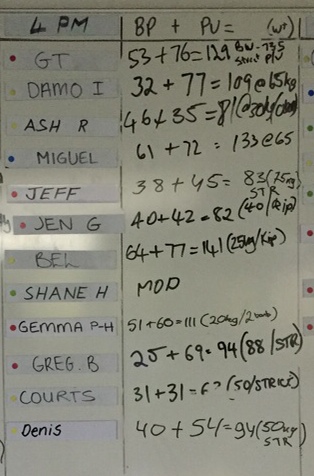 4 PM BP + PU = (wt)
GT 53+76=129 BW-735 Strict PU
DAMO I 32+77=109@65kg
ASH R 46+35=81@30kg
MIGUEL 61+72=133@65
JEFF 38+45=83(75kg STR
JEN G 40+42=82(40/Kip)
BEL 64+77=141(25kg/Kip)
SHANE H MOD
GEMMA P-H 51+60=111(20kg/2
GREG.B 25+69=94(88/STR
COURTS 31+31=62(50/STRICT)
Denis 40+54=94(50kg STR)